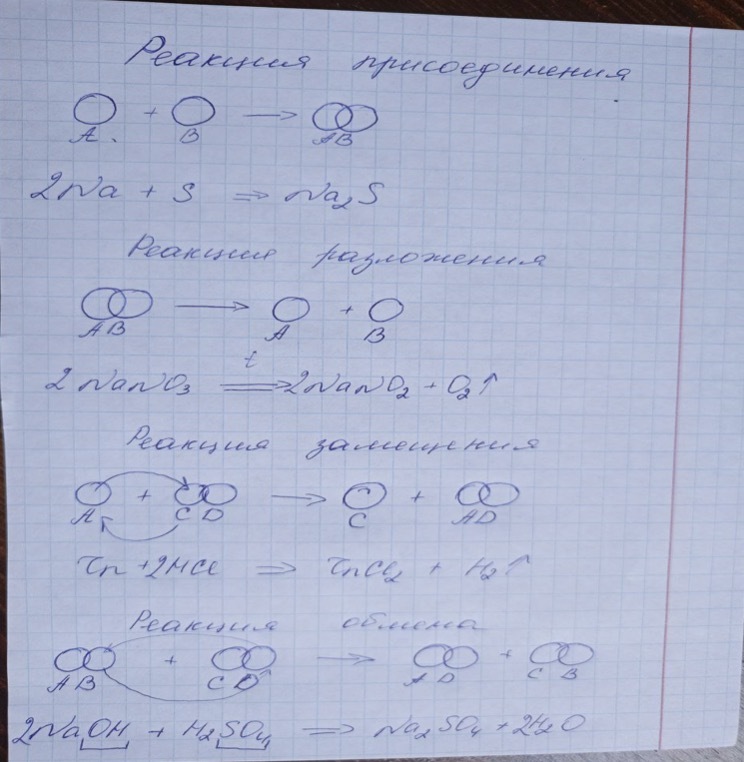 Реакция присоединения
A + B → AB
2Na + S ⇒ Na₂S
Реакция разложения
AB → A + B
t
2NaNO₃ ⇒ 2NaNO₂ + O₂↑
Реакция замещения
A + CD → C + AD
Zn + 2HCl ⇒ ZnCl₂ + H₂↑
Реакция обмена
AB + CD → AD + CB
2NaOH + H₂SO₄ ⇒ Na₂SO₄ + 2H₂O